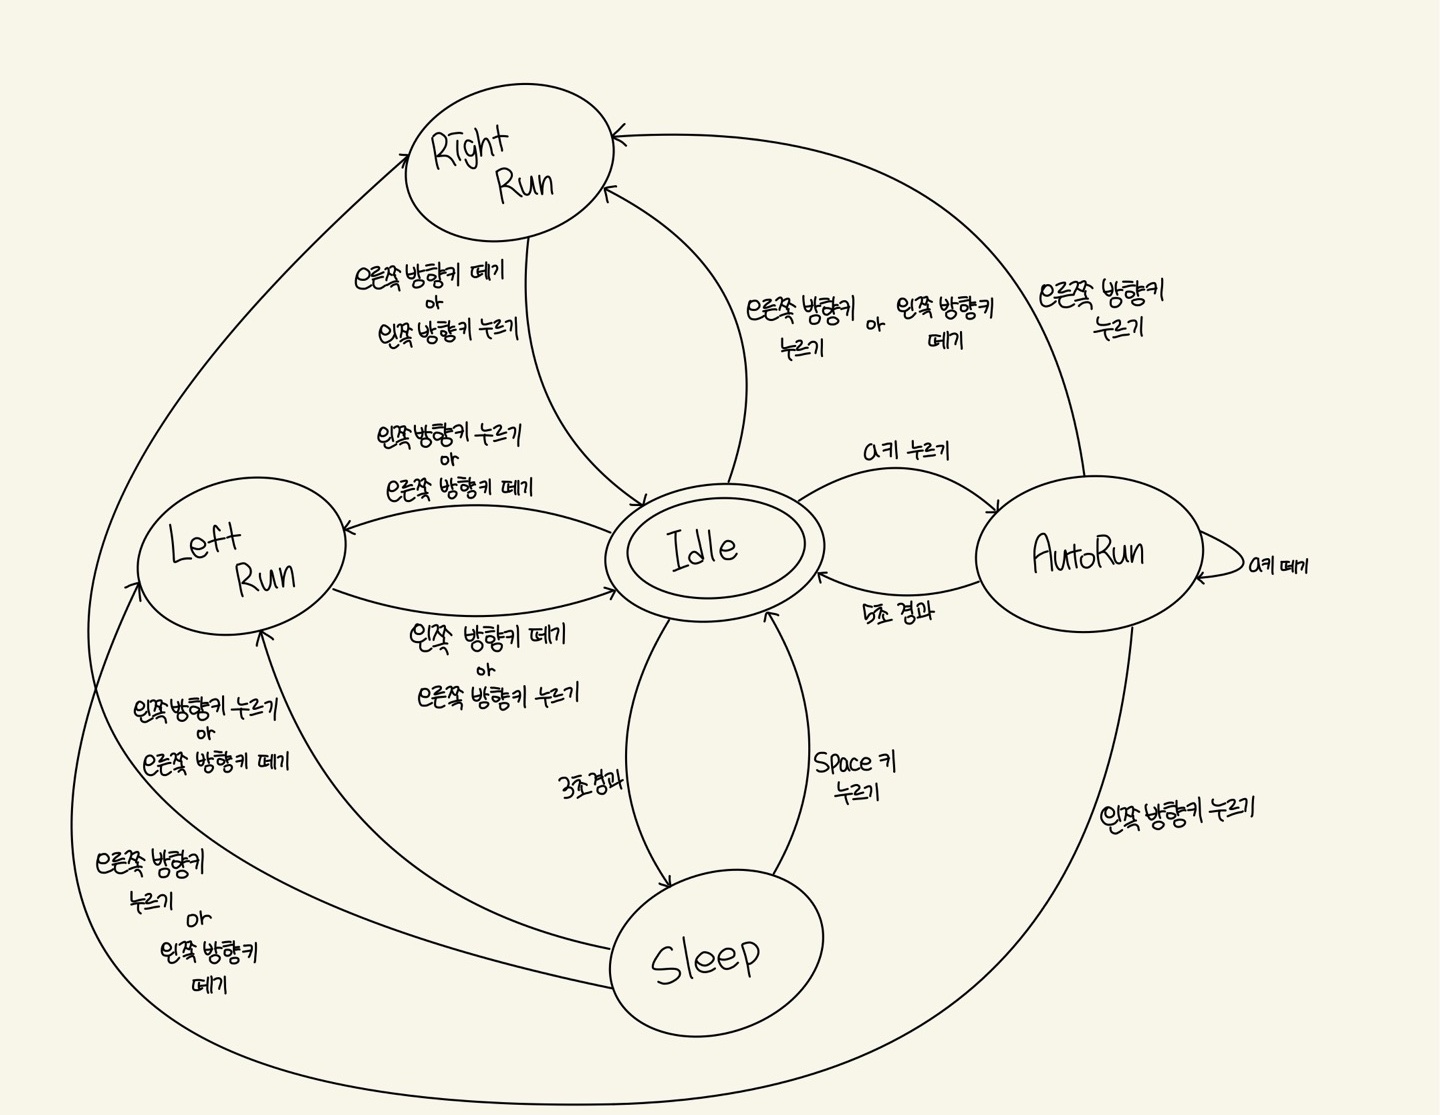 Right
Run
오른쪽 방향키 떼기
or
왼쪽 방향키 누르기
오른쪽 방향키
누르기
or
왼쪽 방향키
떼기
오른쪽 방향키
누르기
왼쪽 방향키 누르기
or
오른쪽 방향키 떼기
a키 누르기
Left
Run
Idle
AutoRun
a키 떼기
5초 경과
왼쪽 방향키 떼기
or
오른쪽 방향키 누르기
왼쪽 방향키 누르기
or
오른쪽 방향키 떼기
3초 경과
Space 키
누르기
왼쪽 방향키 누르기
오른쪽 방향키
누르기
or
왼쪽 방향키
떼기
Sleep